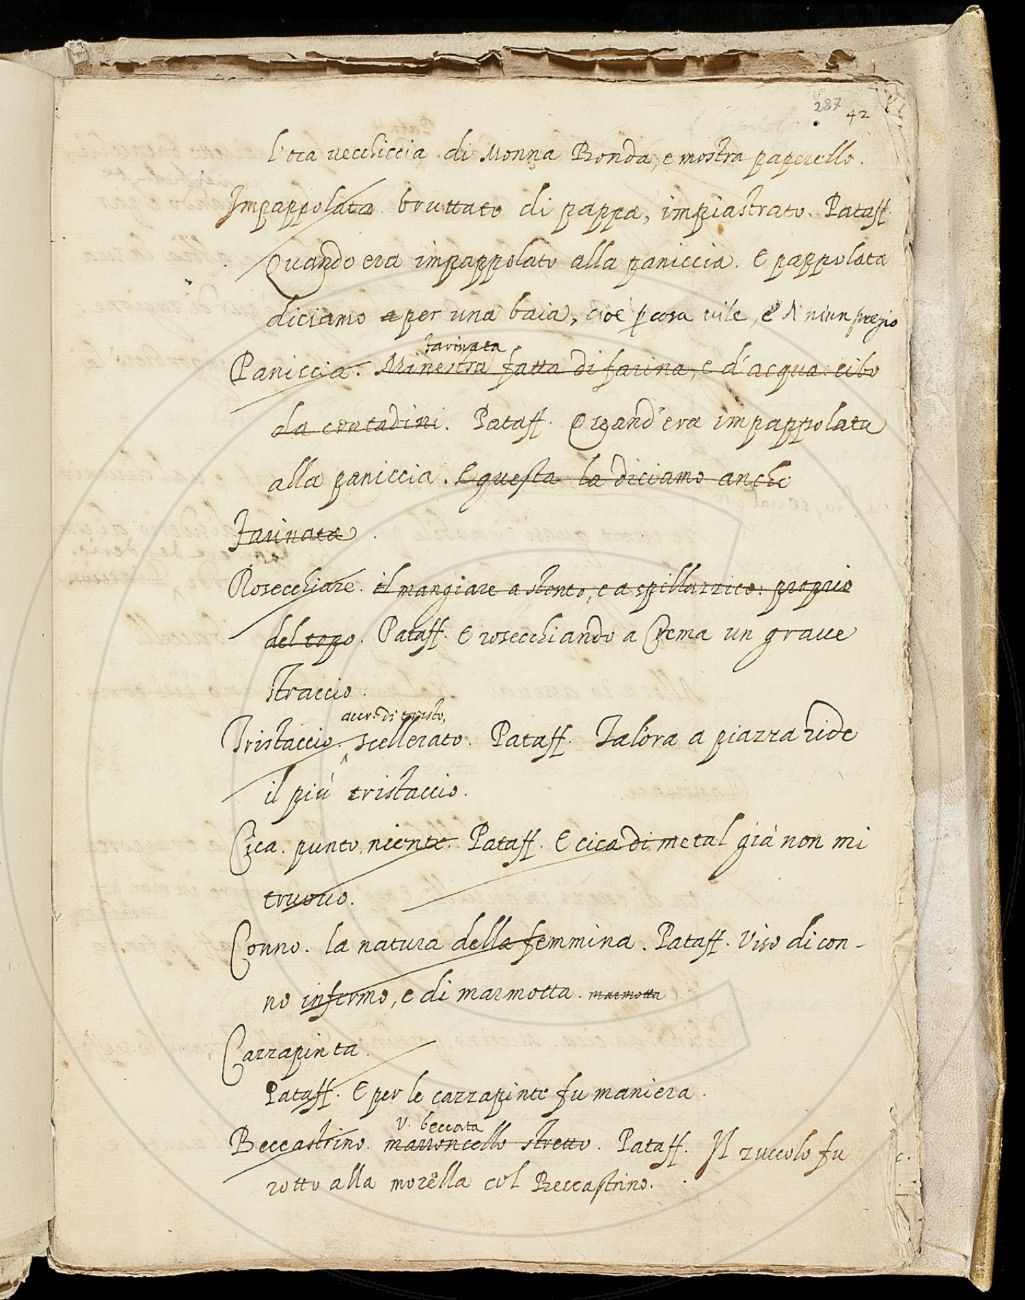 287 42
l'oca vecchiccia di Monna Bonda, e mostra paperello.
Impappolata. bruttato di pappa, impiastrato. Pataff.
Quando era impappolato alla paniccia. E pappolata
diciamo a per una baia, cioè p cosa vile, e di niun pregio
farinata
Paniccia. Minestra fatta di farina, e d'acqua: cibo
da contadini. Pataff. Quand'era impappolata
alla paniccia. E questa la diciamo anche
Farinata.
Rosecchiare. il mangiare a stento, e a spilluzzico: proprio
del topo. Pataff. E rosecchiando a Crema un graue
straccio.
accr. di tristo,
Tristaccio. scellerato. Pataff. Talora a piazza ride
il più tristaccio.
Cica. punto, niente. Pataff. E cica di metal già non mi
truouo.
Conno. la natura della femmina. Pataff. Viso di con-
no infermo, e di marmotta. marmotta
Cazzapinta.
Pataff. E per le cazzapinte fu maniera.
v. beccata
Beccastrino. marroncello stretto. Pataff. Il zuccolo fu
rotto alla morella col Beccastrino.